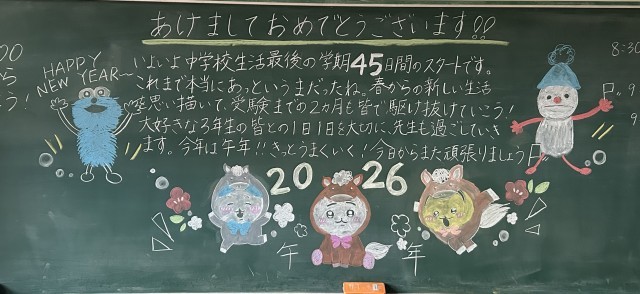 あけましておめでとうございます!!
HAPPY
NEW YEAR〜
いよいよ中学校生活最後の学期45日間のスタートです。
これまで本当にあっというまだったね。春からの新しい生活
を思い描いて、受験までの2カ月も皆で駆け抜けていこう!
大好きな3年生の皆との1日1日を大切に、先生も過ごしていき
ます。今年は午年!!きっとうまくいく!今日からまた頑張りましょう
20 26
午年
8:30
P.9
9
00
う!